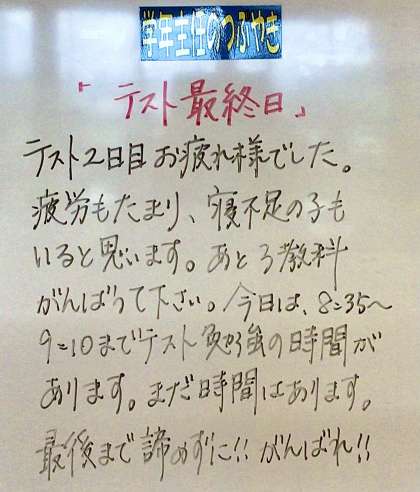 学年主任のつぶやき
「テスト最終日」
テスト2日目お疲れ様でした。
疲労もたまり、寝不足の子も
いると思います。あと3教科
がんばって下さい。今日は、8:35〜
9:10までテスト勉強の時間が
あります。まだ時間はあります。
最後まで諦めずに!!がんばれ!!